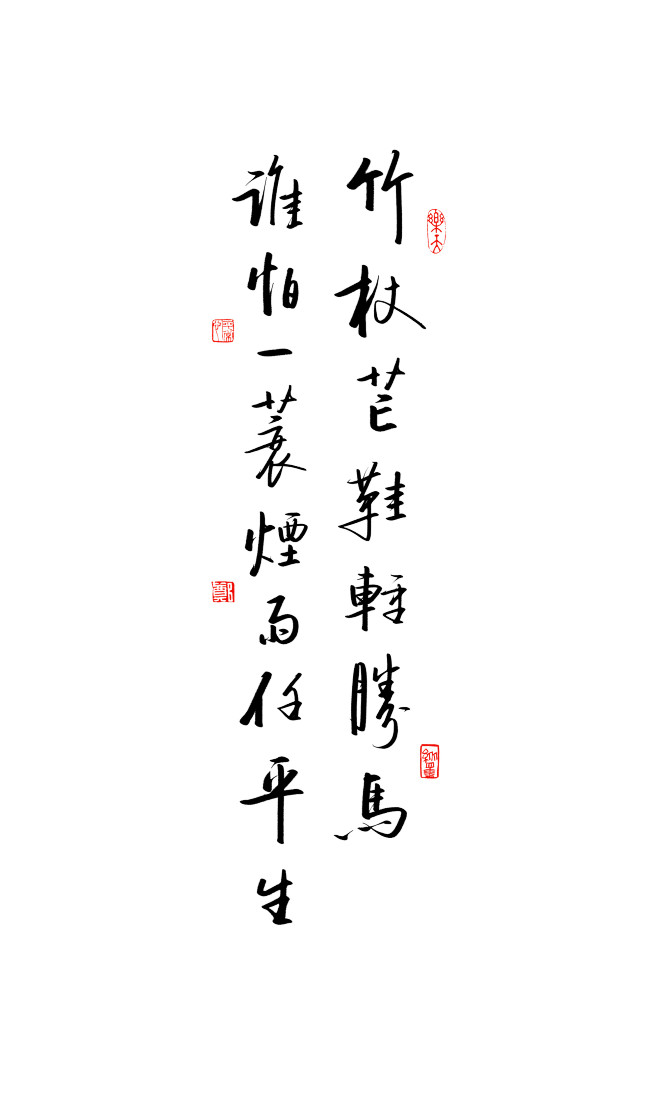 竹杖芒鞋輕勝馬
誰怕一蓑煙雨任平生
樂天